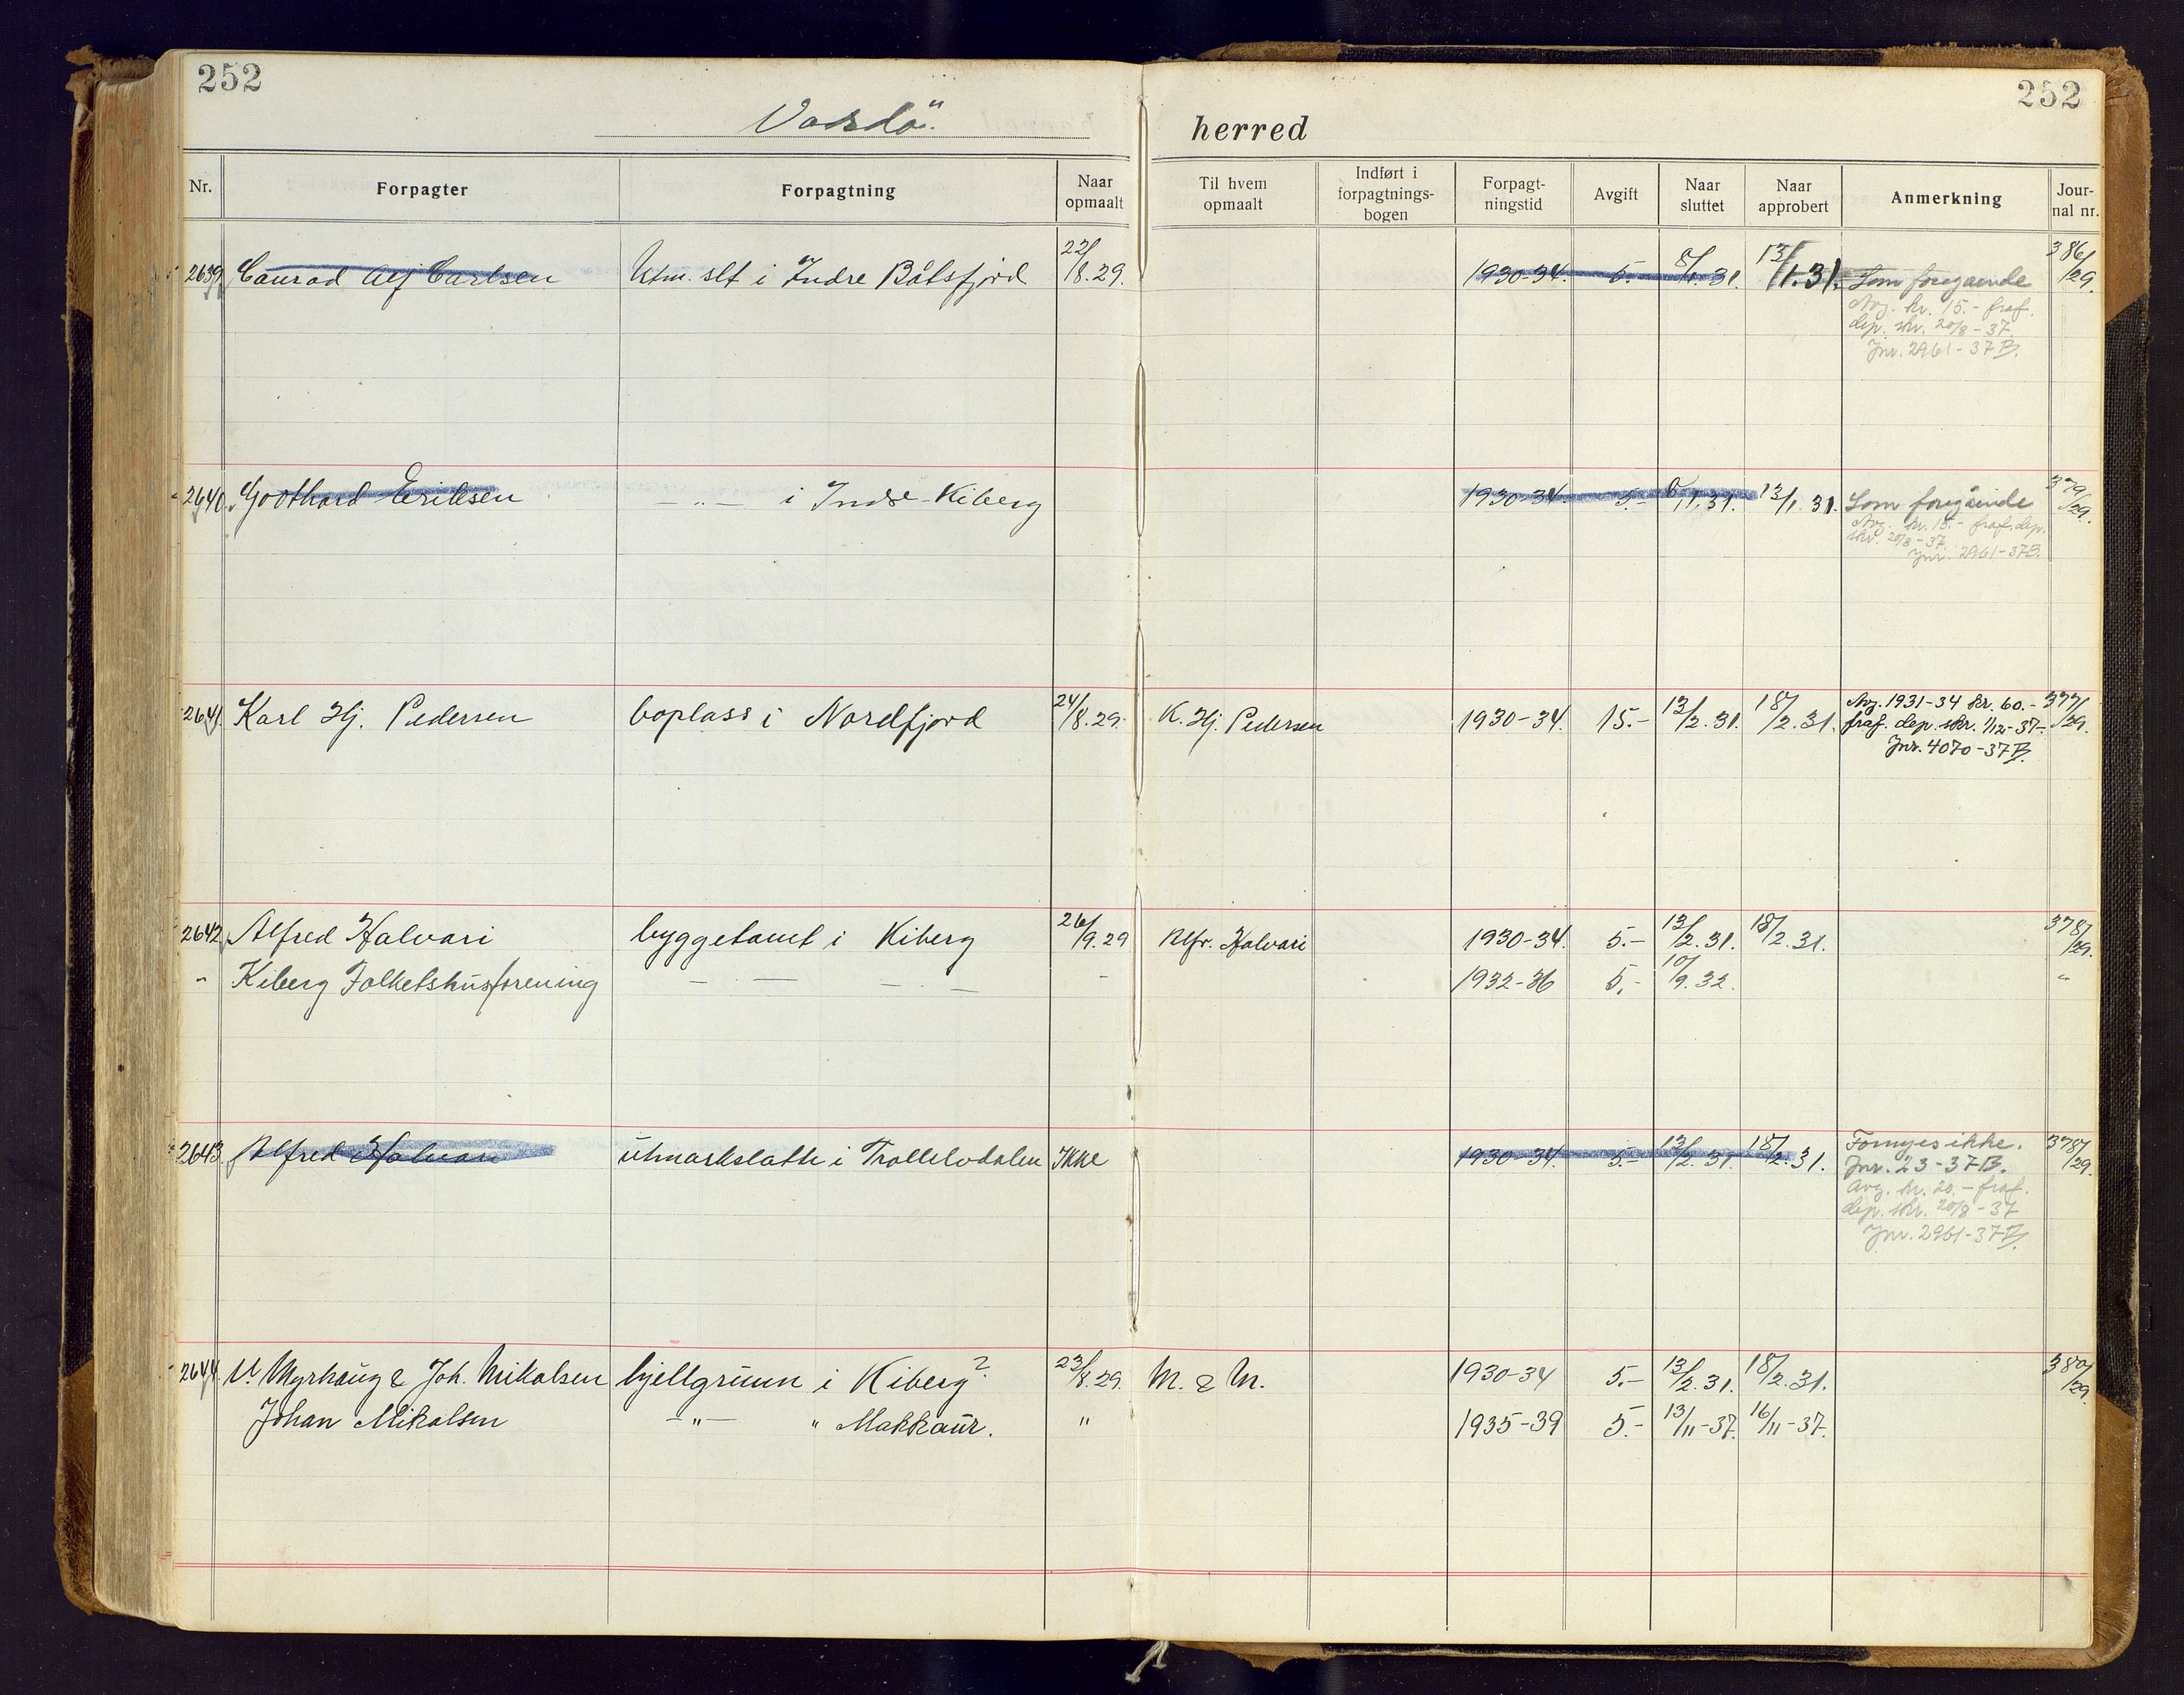 252
252
Vardö.
herred
Nr. Forpagter Forpagtning Naar opmaalt Til hvem opmaalt Indført i forpagtnings-bogen Forpagt-ningstid Avgift Naar sluttet Naar approbert Anmerkning Jour-nal nr.
2639 Conrad Alf Carlsen Utm. slt i Indre Båtsfjord 22/8.29. 1930-34. 5.- 8/1.31. 13/1.31. Som foregående 386/29.
Avg. kr. 15.- fraf.
dep. skr. 20/8-37.
Jnr. 2961-37B.
2640. Gothard Eriksen — " — i Indre Kiberg 1930-34. 5.- 6/1.31. 13/1.31. Som foregående 379/29.
Avg. kr. 15.- fraf. dep.
skr. 20/8-37.
Jnr. 2961-37B.
2641. Karl Hj. Pedersen boplass i Nordfjord 24/8.29. K. Hj. Pedersen 1930-34. 15.- 13/2.31. 18/2.31. Avg. 1931-34 kr. 60.- 377/29.
fraf. dep. skr. 1/12-37.
Jnr. 4070-37B.
2642 Alfred Halvari byggetomt i Kiberg 26/9.29 Alfr. Halvari 1930-34. 5.- 13/2.31. 18/2.31. 378/29.
" Kiberg Folketshusforening — — — — - 1932-36 5,- 10/9.32. "
2643. Alfred Halvari utmarkslåtte i Trollelvdalen Ikke 1930-34. 5.- 13/2.31. 18/2.31. Fornyes ikke. 378/29.
Jnr. 23-37B.
Avg. kr. 20.- fraf.
dep. skr. 20/8-37
Jnr. 2961-37B.
2644. Myrhaug & Joh. Mikalsen hjellgrunn i Kiberg? 23/8.29. M. & M. 1930-34 5.- 13/2.31. 18/2.31. 380/29.
Johan Mikalsen — " — " Makkaur. " 1935-39 5.- 13/11-37. 16/11-37.